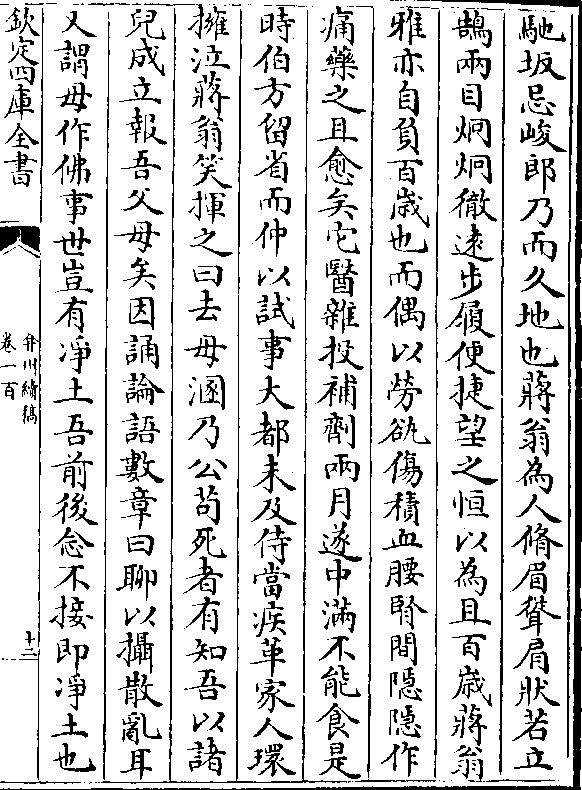 馳坂忌峻郎乃而久地也蔣翁為人脩眉聳肩狀若立
鵠兩目炯炯徹遠步履便捷望之恒以為且百歲蔣翁
雅亦自負百歲也而偶以勞欲傷積血腰腎間隱隱作
痛藥之且愈矣它醫雜投補劑兩月遂中滿不能食是
時伯方留省而仲以試事大都未及侍當疾革家人環
擁泣蔣翁笑揮之曰去毋溷乃公苟死者有知吾以諸
兒成立報吾父母矣因誦論語數章曰聊以攝散亂耳
又謂毋作佛事世豈有凈土吾前後念不接即凈土也
欽定四庫全書
弇州續稿
卷一百
十二